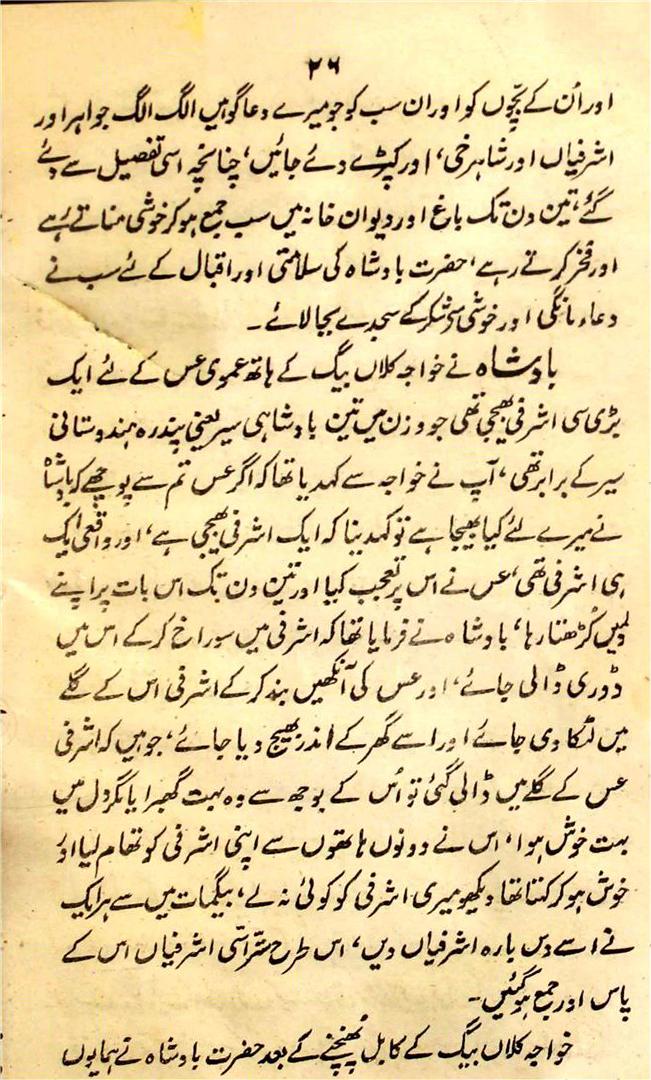 ۲۶
اور اُن کے بچّوں کو اور ان سب کو جو میرے دعا گو ہیں الگ الگ جواہر اور
اشرفیاں اور شاہرخی، اور کپڑے دئے جائیں، چنانچہ اسی تفصیل سے دئے
گئے، تین دن تک باغ اور دیوان خانہ میں سب جمع ہو کر خوشی مناتے رہے
اور فخر کرتے رہے، حضرت بادشاہ کی سلامتی اور اقبال کے لئے سب نے
دعاء مانگی اور خوشی شکر کے سجدے بجا لائے۔
بادشاہ نے خواجہ کلاں بیگ کے ہاتھ عموی عس کے لئے ایک
بڑی سی اشرفی بھیجی تھی جو وزن میں تین بادشاہی سیر یعنی پندرہ ہندوستانی
سیر کے برابر تھی، آپ نے خواجہ سے کہدیا تھا کہ اگر عس تم سے پوچھے کہ بادشاہ
نے میرے لئے کیا بھیجا ہے تو کہدینا کہ ایک اشرفی بھیجی ہے، اور واقعی ایک
ہی اشرفی تھی، عس نے اس پر تعجب کیا اور تین دن تک اس بات پر اپنے
دلمیں کُڑھتا رہا، بادشاہ نے فرمایا تھا کہ اشرفی میں سوراخ کر کے اس میں
ڈوری ڈالی جائے، اور عس کی آنکھیں بند کر کے اشرفی اس کے گلے
میں لٹکا دی جائے اور اسے گھر کے اندر بھیج دیا جائے، جوہیں کہ اشرفی
عس کے گلے میں ڈالی گئی تو اُس کے بوجھ سے وہ بہت گھبرایا مگر دل میں
بہت خوش ہوا، اس نے دونوں ہاتھوں سے اپنی اشرفی کو تھام لیا اور
خوش ہو کر کہتا تھا دیکھو میری اشرفی کو کوئی نہ لے، بیگمات میں سے ہر ایک
نے اسے دس بارہ اشرفیاں دیں، اس طرح ستّر اسّی اشرفیاں اس کے
پاس اور جمع ہو گئیں۔
خواجہ کلاں بیگ کے کابل پُہنچنے کے بعد حضرت بادشاہ نے ہمایوں